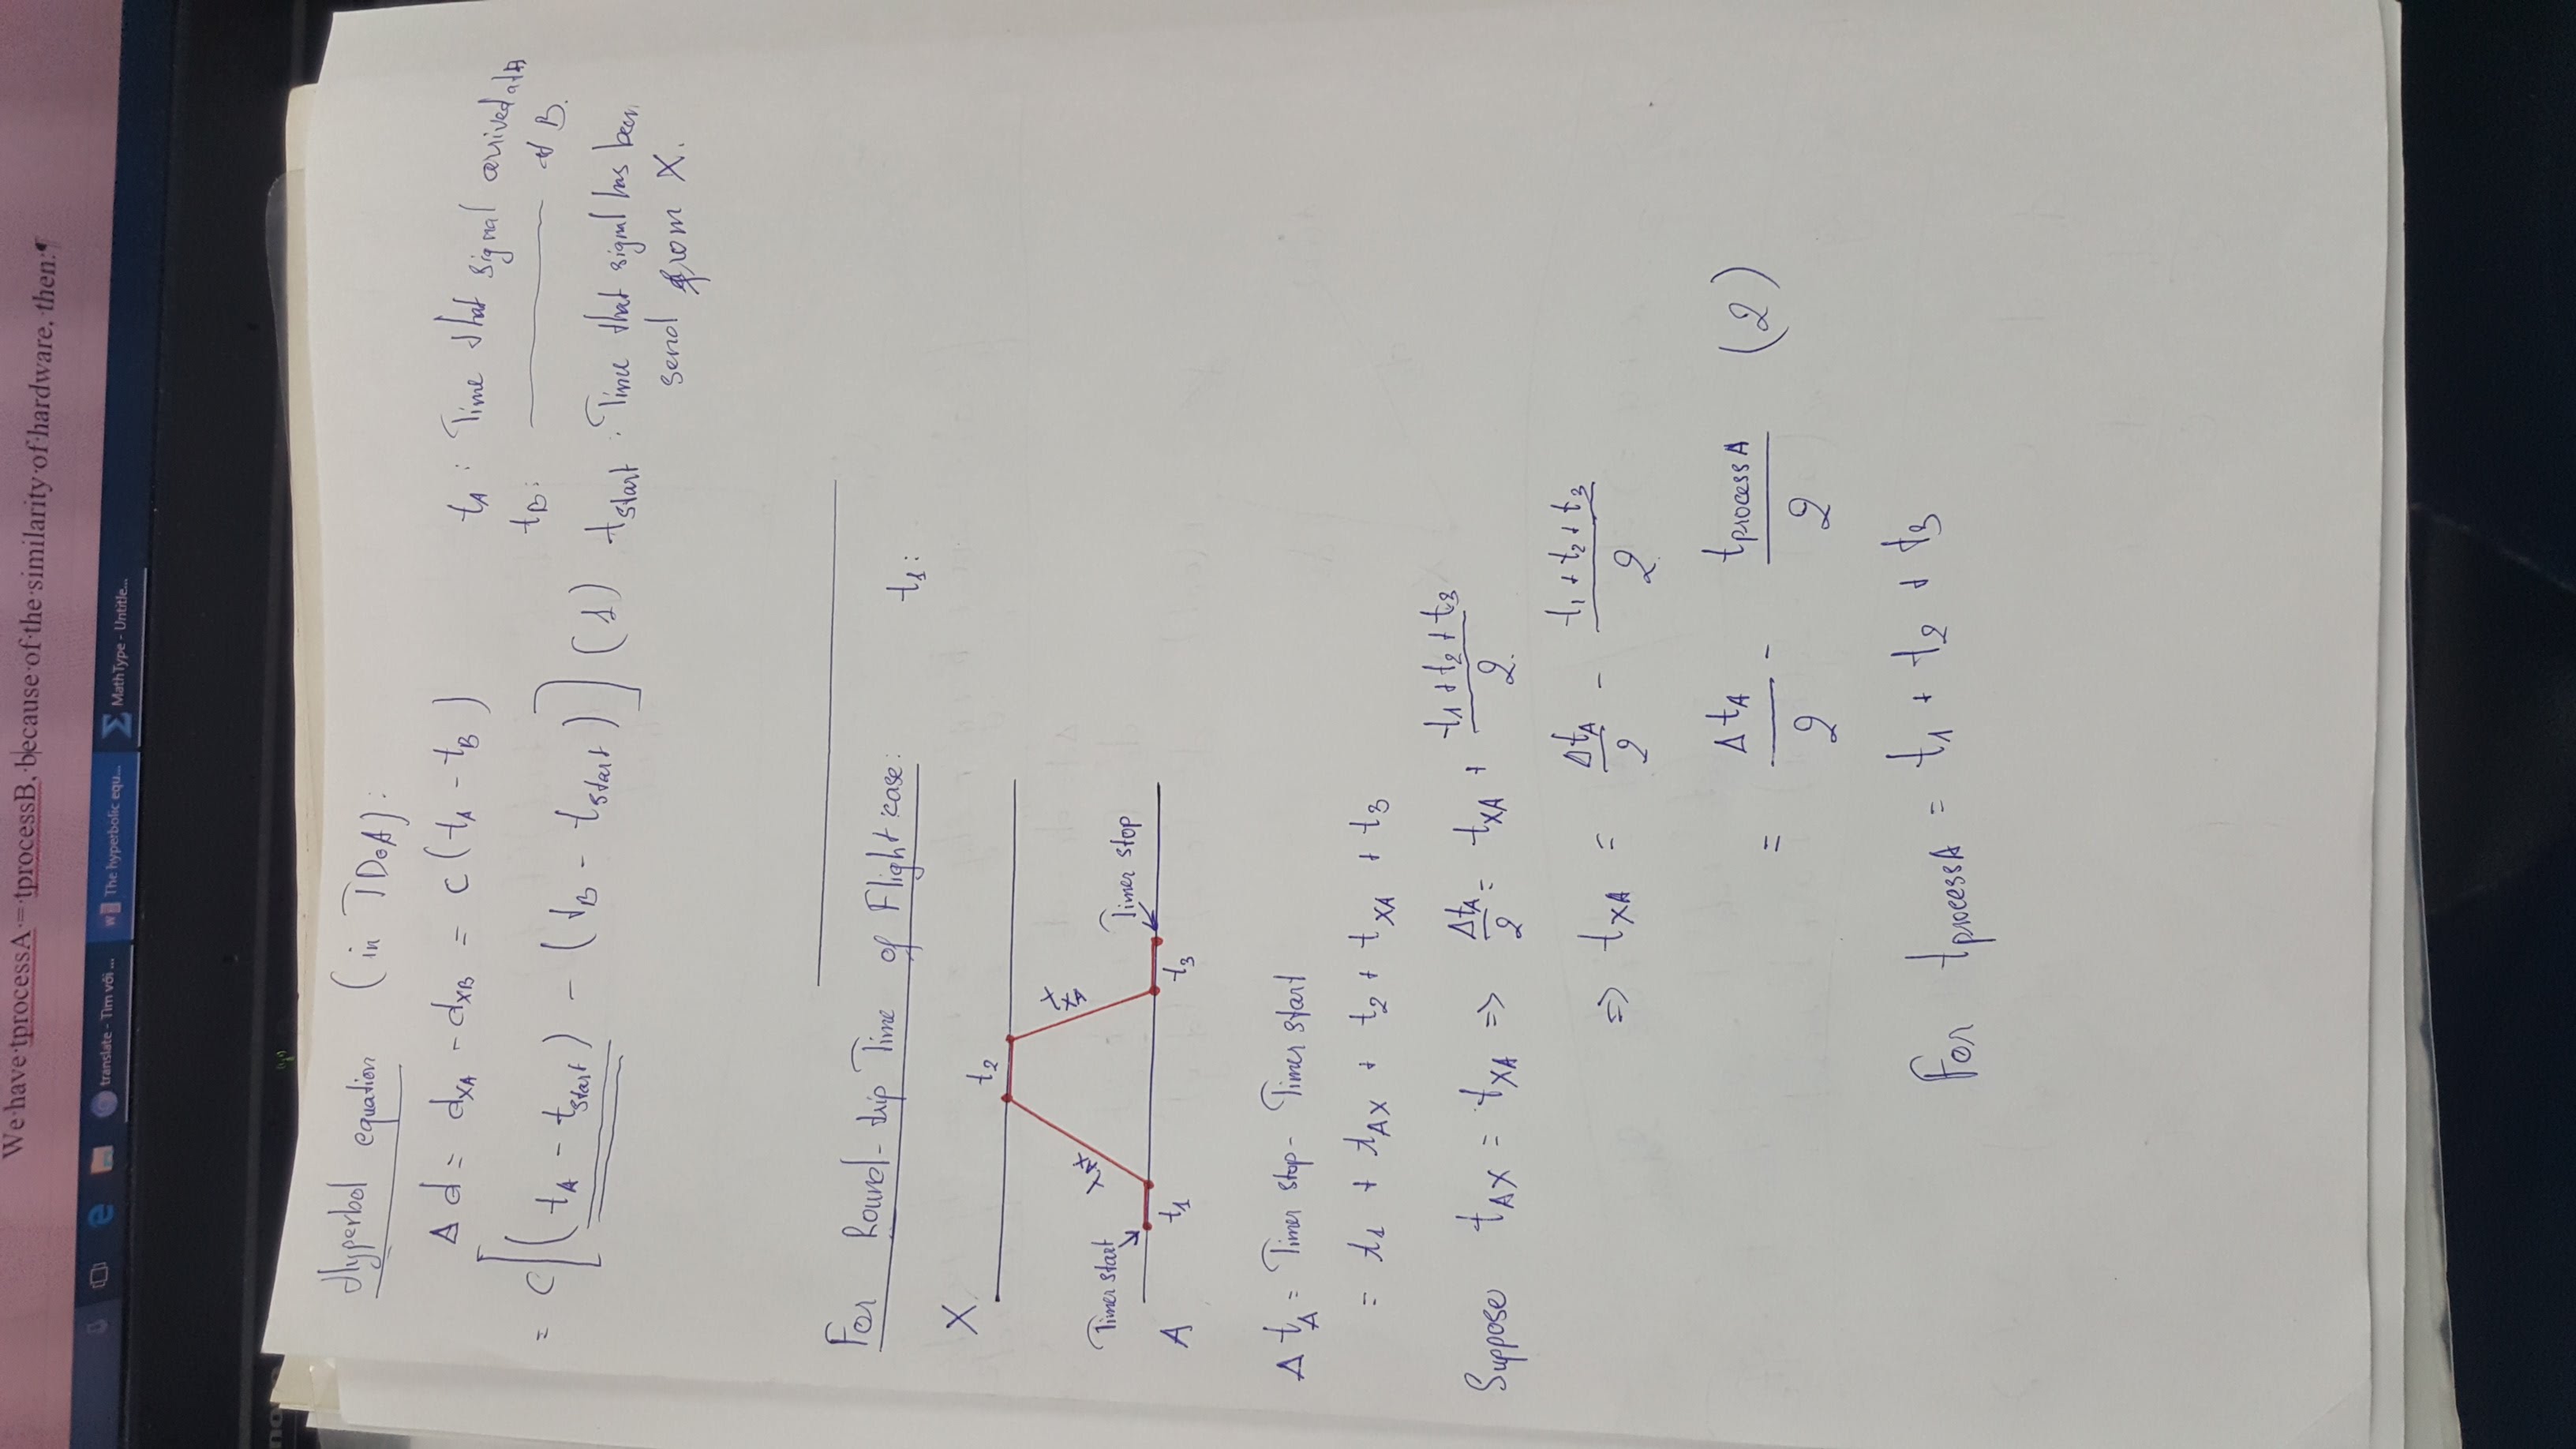 We have tprocessA = tprocessB, because of the similarity of hardware, then:¶
translate - Tìm với ...
The hyperbolic equ...
MathType - Untitle...
Hyperbol equation (in TDoA):
Δd = dXA - dXB = c(tA - tB)
= c[(tA - tstart) - (tB - tstart)] (1)
tA : Time that signal arrived at A
tB: ———— at B.
tstart : Time that signal has been
send from X.
For Round-trip Time of Flight case:
t1:
X
t2
tAX
tXA
Timer start
Timer stop
A
t1
t3
ΔtA = Timer stop - Timer start
= t1 + tAX + t2 + tXA + t3
Suppose tAX = tXA => ΔtA/2 = tXA + (t1 + t2 + t3)/2
=> tXA = ΔtA/2 - (t1 + t2 + t3)/2
= ΔtA/2 - tprocessA/2 (2)
For tprocessA = t1 + t2 + t3